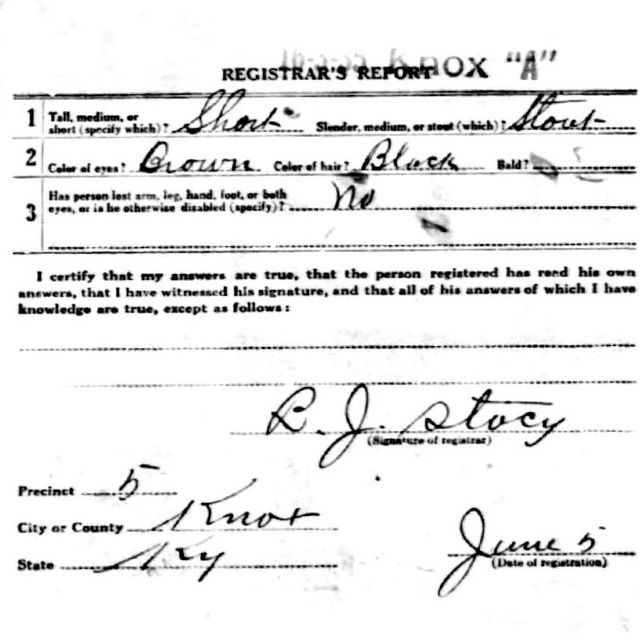 KNOX "A"
REGISTRAR'S REPORT
1 Tall, medium, or short (specify which)? Short Slender, medium, or stout (which)? Stout
2 Color of eyes? Brown Color of hair? Black Bald?
3 Has person lost arm, leg, hand, foot, or both eyes, or is he otherwise disabled (specify)? No
I certify that my answers are true, that the person registered has read his own
answers, that I have witnessed his signature, and that all of his answers of which I have
knowledge are true, except as follows:
R. J. Stacy
(Signature of registrar)
Precinct 5
City or County Knox
State Ky
June 5
(Date of registration)